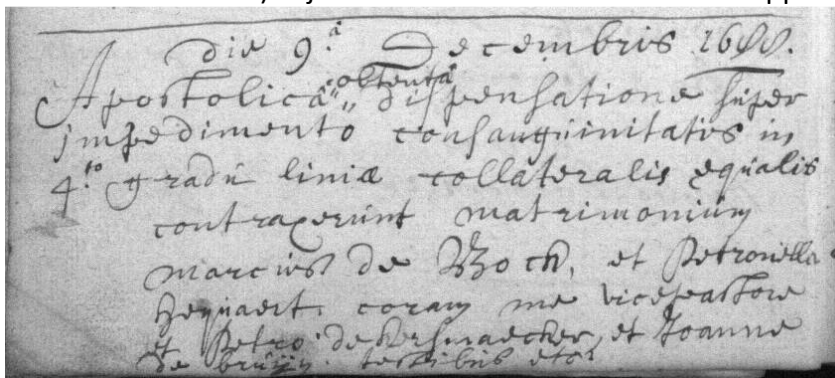 die 9.a Decembris 1688.
Apostolicâ obtentâ dispensatione super
impedimento consanguinitatis in
4.to gradu liniæ collateralis equalis
contraxerunt matrimonium
marcus de Bock, et Petronella
Heyvaert. coram me vicepastore
et Petro de Kersmaecker, et Joanne
de bruijn. testibus etc.